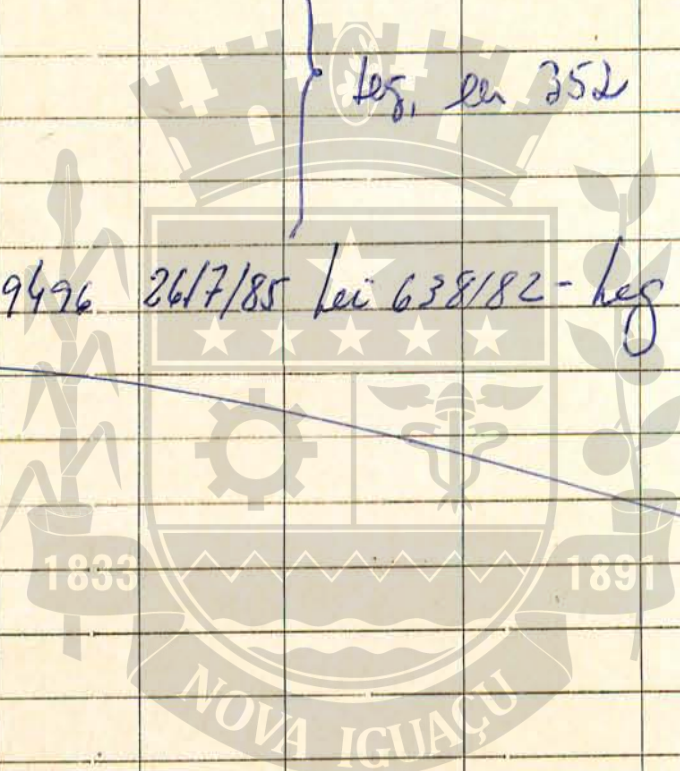 352
9496 26/7/85 Lei 638/82 - Leg
1833 1891
NOVA IGUAÇU